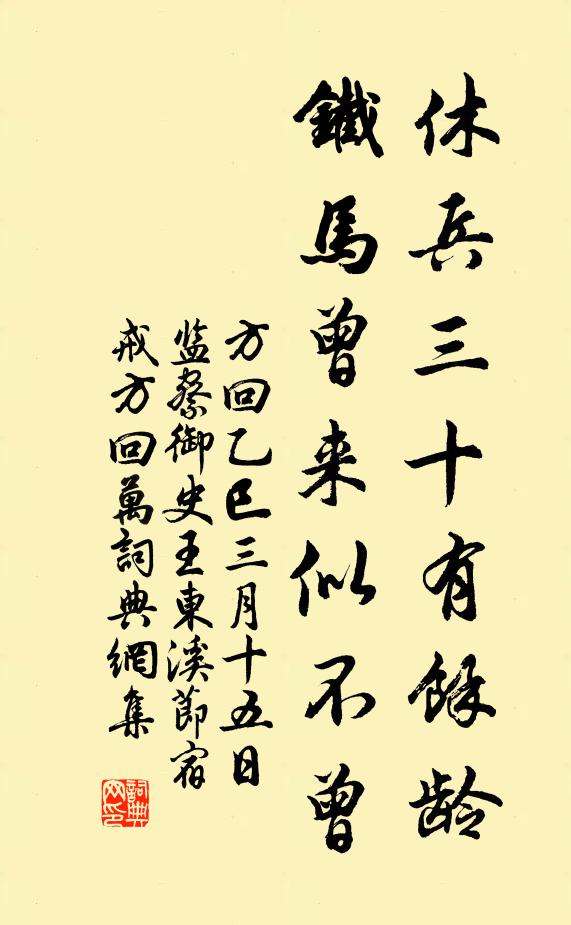 休兵三十有餘齡
鐵馬曾来似不曾
方回乙巳三月十五日
监察御史王東溪節宿
戒方回萬詞典網集
詞典网印